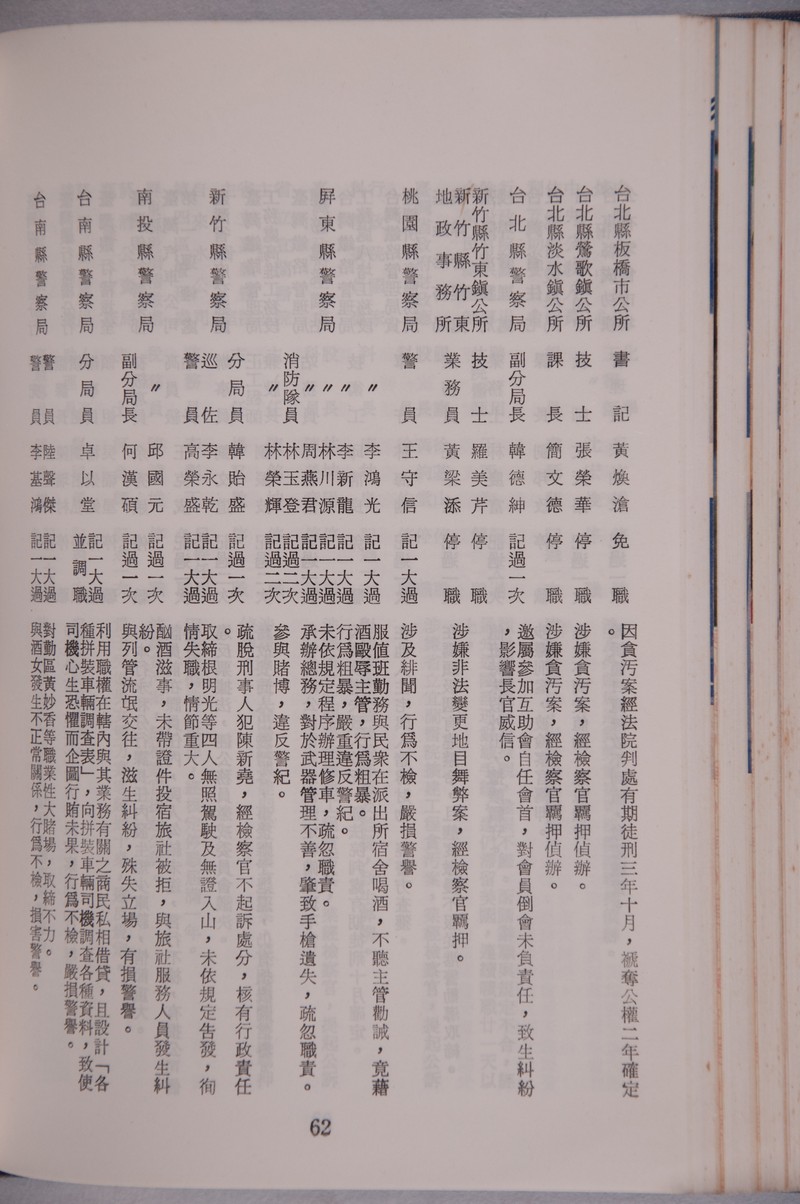 台北縣板橋市公所　書記　黃煥滄　免職　因貪汚案經法院判處有期徒刑三年十月，褫奪公權二年確定
。
台北縣鶯歌鎭公所　技士　張榮華　停職　涉嫌貪汚案，經檢察官羈押偵辦。
台北縣淡水鎭公所　課長　簡文德　停職　涉嫌貪汚案，經檢察官羈押偵辦。
台北縣警察局　副分局長　韓德紳　記過一次　邀屬參加互助會自任會首，對會員倒會未負責任，致生糾紛
，影響長官威信。
新竹縣竹東鎭公所　技士　羅美芹　停職　涉嫌非法變更地目舞弊案，經檢察官羈押。
新竹縣竹東
地政事務所　業務員　黃梁添　停職
桃園縣警察局　警員　王守信　記一大過　涉及緋聞，行爲不檢，嚴損警譽。
屏東縣警察局　〃　李鴻光　記一大過　服值班勤務與民衆在派出所宿舍喝酒，不聽主管勸誡，竟藉
酒毆辱主管，行爲粗暴。
〃　李新龍　記一大過　行爲粗暴，嚴重違反警紀。
〃　林川源　記一大過　未依規定程序辦理修車，疏忽職責。
〃　周燕君　記一大過　承辦總務，對於武器管理不善，肇致手槍遺失，疏忽職責。
消防隊員　林玉登　記過二次　參與賭博，違反警紀。
〃　林榮輝　記過二次
新竹縣警察局　分局員　韓貽盛　記過一次　疏脫刑事人犯陳新堯，經檢察官不起訴處分，核有行政責任
。
巡佐　李永乾　記一大過　取締根明光等四人無照駕駛及無證入山，未依規定告發，徇
警員　高榮盛　記一大過　情失職，情節重大。
南投縣警察局　〃　邱國元　記過一次　酗酒滋事，未帶證件投宿旅社被拒，與旅社服務人員發生糾
紛。
副分局長　何漢碩　記過一次　與列管流氓交往，滋生糾紛，殊失立場，有損警譽。
台南縣警察局　分局員　卓以堂　記一大過
並調職　利用職權在轄內與其業務有關之商民私相借貸，且設計「各
種拼裝車輛調查表」，向拼裝車輛司機調查各種資料，致使
司機心生恐懼而企圖行賄未果，行爲不檢，嚴損警譽。
台南縣警察局　警員　陸聲傑　記一大過　對勤區黃妙香等職業性大賭場，取締不力。
警員　李基鴻　記一大過　與酒女發生不正常關係，行爲不檢，損害警譽。
62